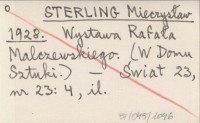 STERLING Mieczysław
1928. Wystawa Rafała
Malczewskiego. (W Domu
Sztuki.) – Świat 23,
nr 23: 4, il.